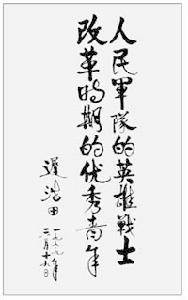 人民軍隊的英雄戰士
改革時期的优秀青年
遲浩田
一九八九年